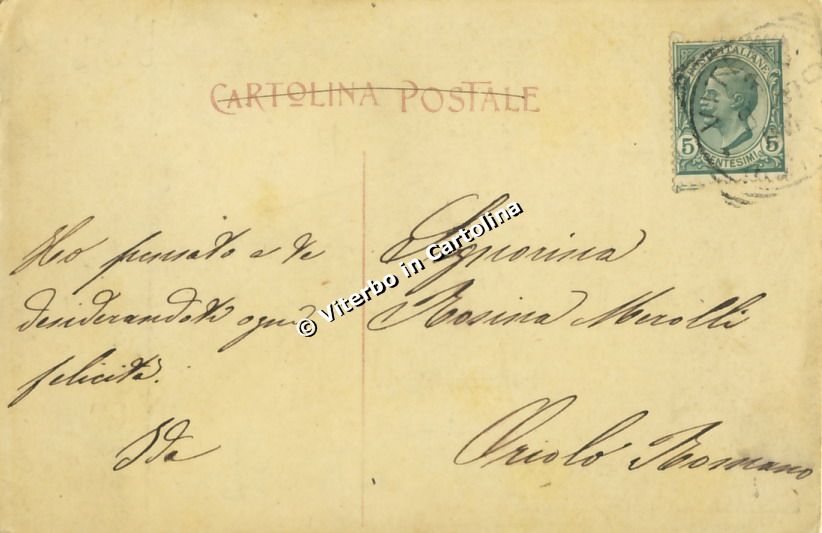 CARTOLINA POSTALE
POSTE ITALIANE
5 CENTESIMI 5
Ho pensato a te
desiderandoti ogni
felicità.
Ida
Signorina
Rosina Merolli
Oriolo Romano
© Viterbo in Cartolina